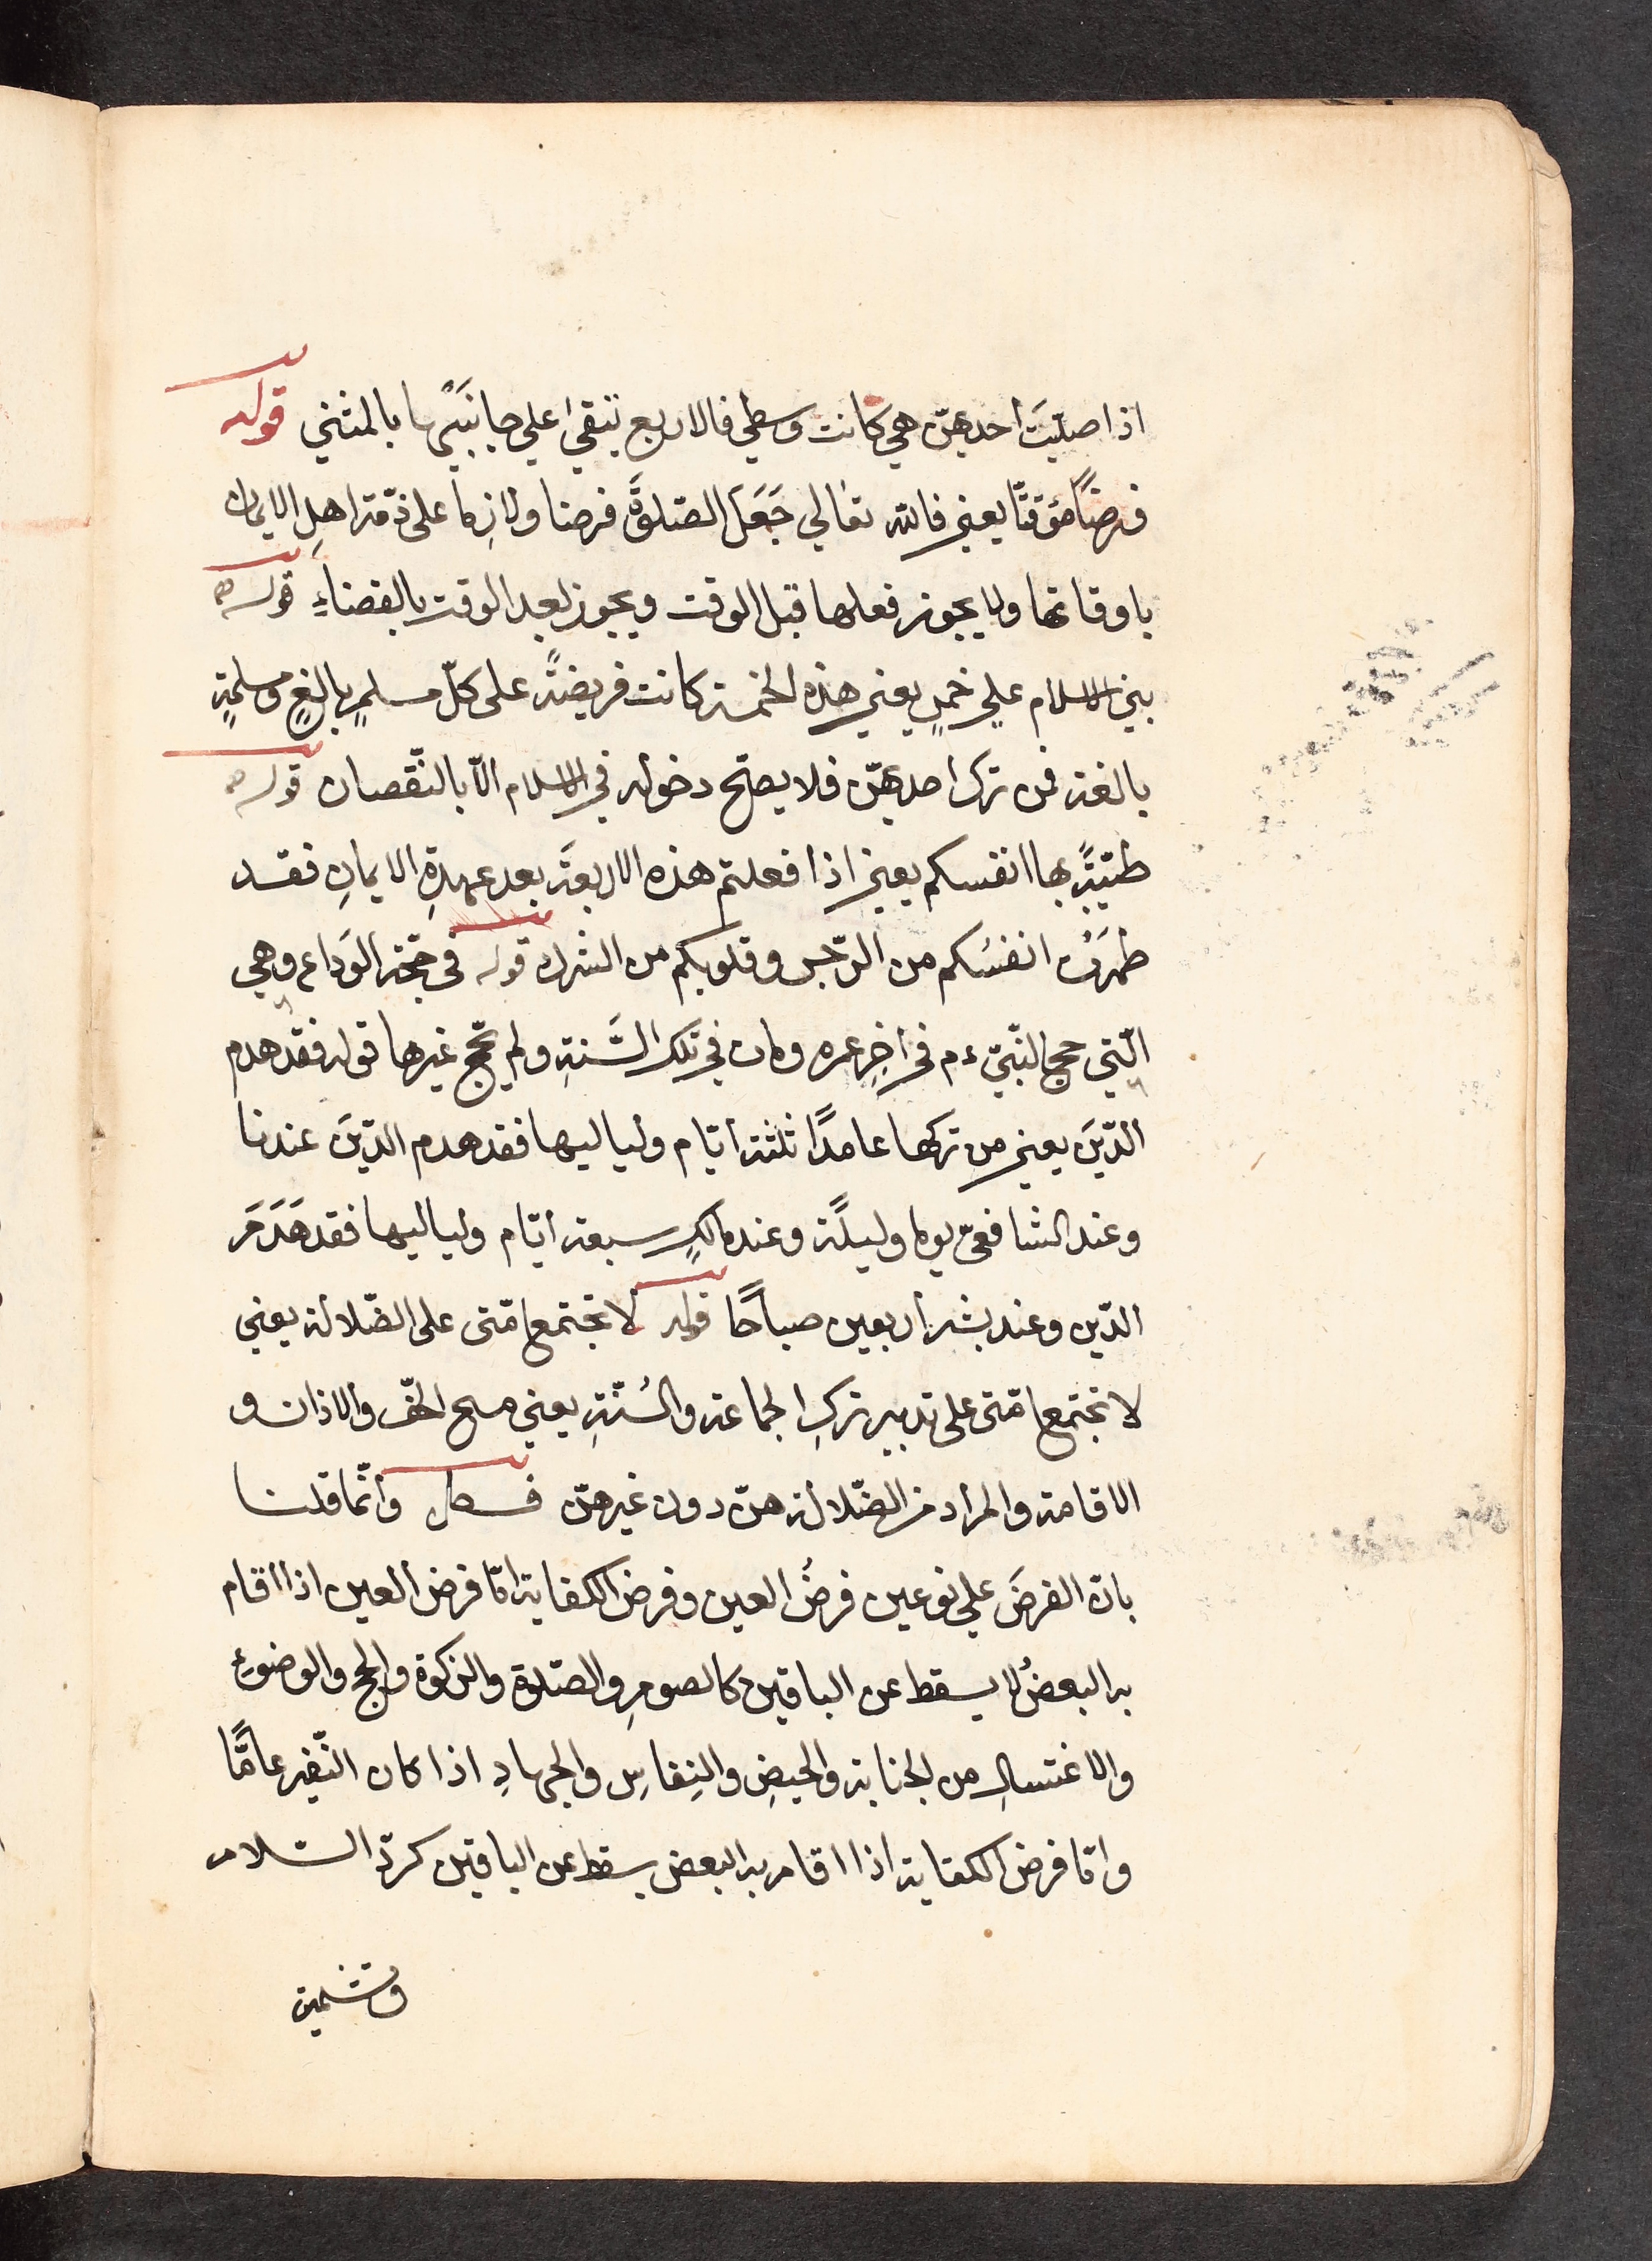 اذا صلّيتَ احدهنّ هي كانت وسطي فالاربع تبقي علي جانبَيها بالمثني قوله
فرضًا مؤقتًا يعني فالله تعالي جَعَلَ الصّلوةَ فرضا ولازِما علي ذمّة اهلِ الايمان
باوقاتها ولا يجوز فعلها قبل الوقت ويجوز بعد الوقت بالقضاءِ قوله
بني الاسلام علي خمسٍ يعني هذه الخمسة كانت فريضةً على كلّ مسلمٍ بالغٍ ومسلمةٍ
بالغة فمن ترك احدهنّ فلا يصحّ دخوله في الاسلام الّا بالنّقصان قوله
طيّبةً بها انفسكم يعني اذا فعلتم هذه الاربعةَ بعد عهدةِ الايمانِ فقد
طهرَت انفسُكم من الرّجس وقلوبكم من الشرك قوله في حجّة الوَداع وهي
الّتي حج النّبيّ ءم في أخِرِ عمره ومات في تلك السَّنةِ ولم يحجّ غيرها قوله فقد هدم
الدّينَ يعني من تركها عامدًا ثلثة أيّام ولياليها فقد هدم الدّينَ عندنا
وعند الشافعيّ يوما وليلةً وعند مالكٍ سبعة أيّام ولياليها فقد هَدَمَ
الدّين وعند بشر أربعين صباحًا قوله لا تجتمع امّتى على الضّلالة يعني
لا تجتمع امّتى على تدبير تركِ الجماعة والسُنّةِ يعني مسح الخفّ والاذان و
الاقامة والمراد من الضّلالة هنّ دون غيرهنّ فصل وانّما قلنا
بانّ الفرضَ علي نوعين فرضُ العين وفرض الكفاية امّا فرض العين اذا اقام
به البعضُ لا يسقط عن الباقين كالصومِ والصّلوة والزكوة والحج والوضوءِ
والاغتسالِ من الجنابة والحيضِ والنِفاسِ والجهادِ اذا كان النّفير عامًّا
وامّا فرض الكفاية اذا اقام به البعض يسقط عن الباقين كردّ السّلام
وتشميت